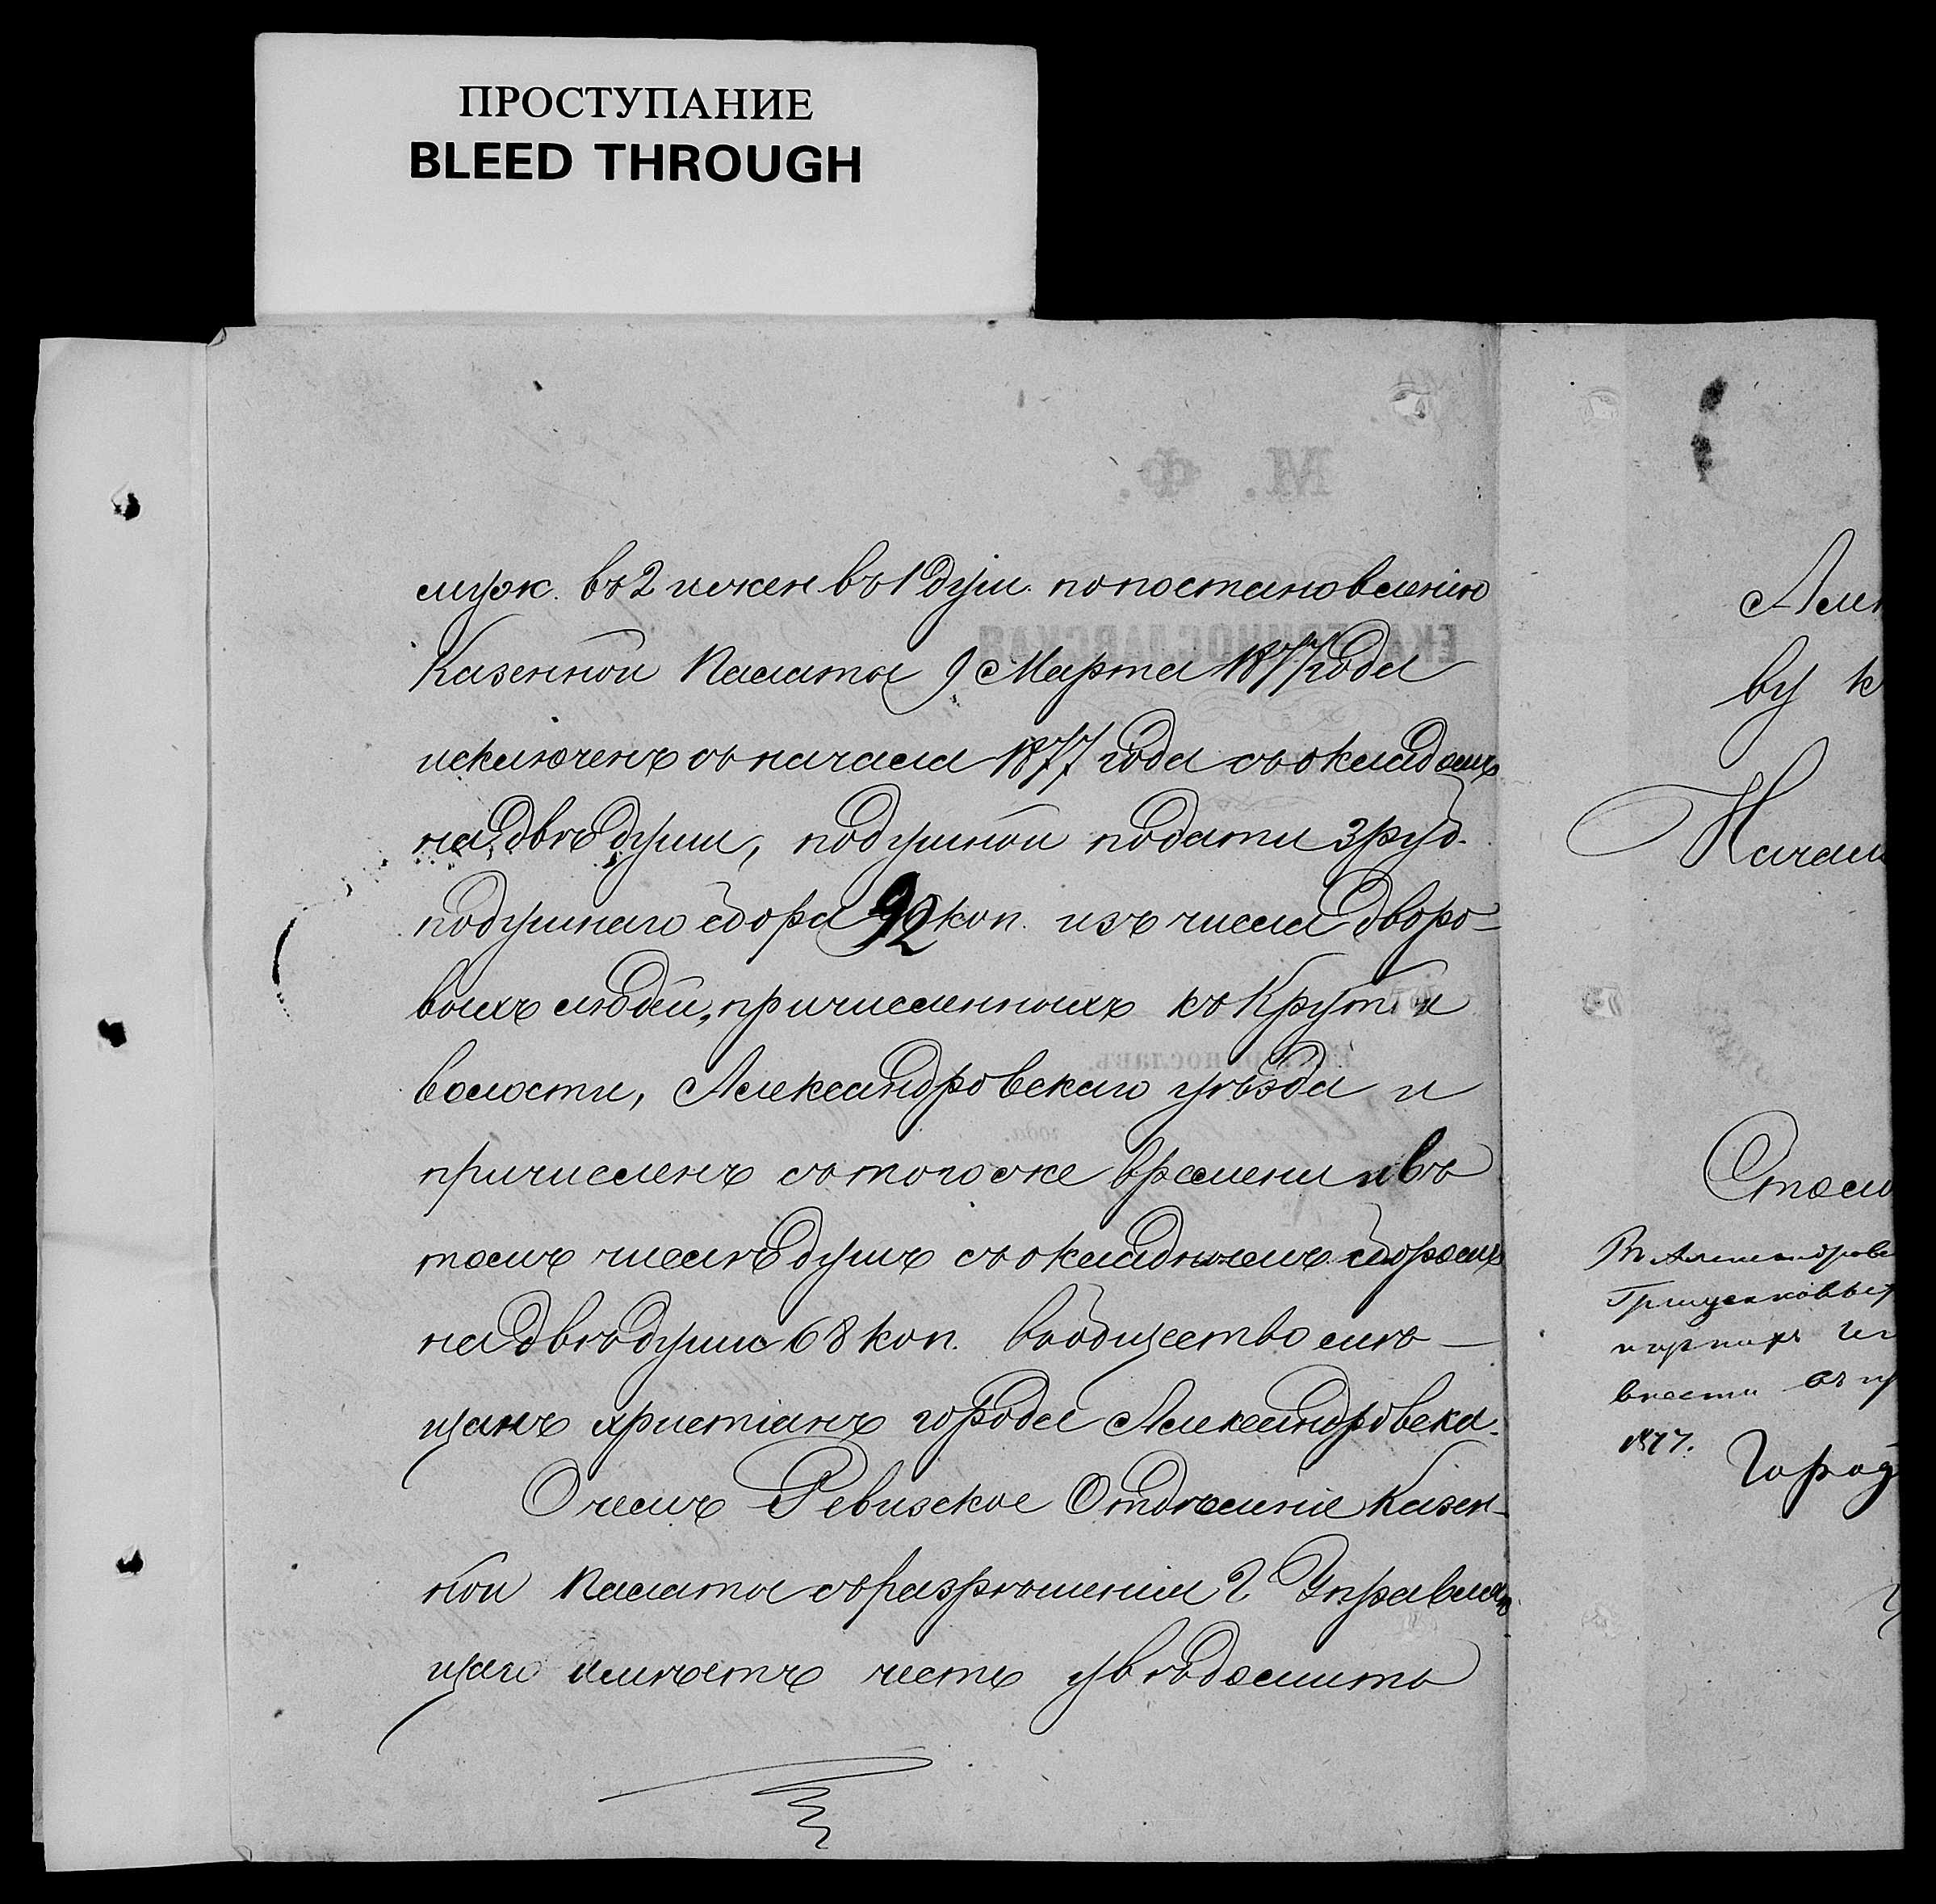 ПРОСТУПАНИЕ
BLEED THROUGH
муж. въ 2 и жен въ 1 душ. по постановленію
Казенной Палаты 9 Марта 1877 года
исключенъ съ начала 1877 года съ окладомъ
на двѣ души, подушной подати 3 руб.
подушнаго сбора 92 коп. изъ числа дворо-
выхъ людей, причисленныхъ къ
волости, Александровскаго уѣзда и
причисленъ съ того же времени и въ
томъ числѣ душъ съ окладнымъ сборомъ
на двѣ души 68 коп. въ общество мѣ-
щанъ христіанъ города Александровска.
О чемъ Ревизское Отдѣленіе Казен-
ной Палаты съ разрѣшенія Г Управляю
щаго имѣетъ честь увѣдомить
ву к
1877.
Город